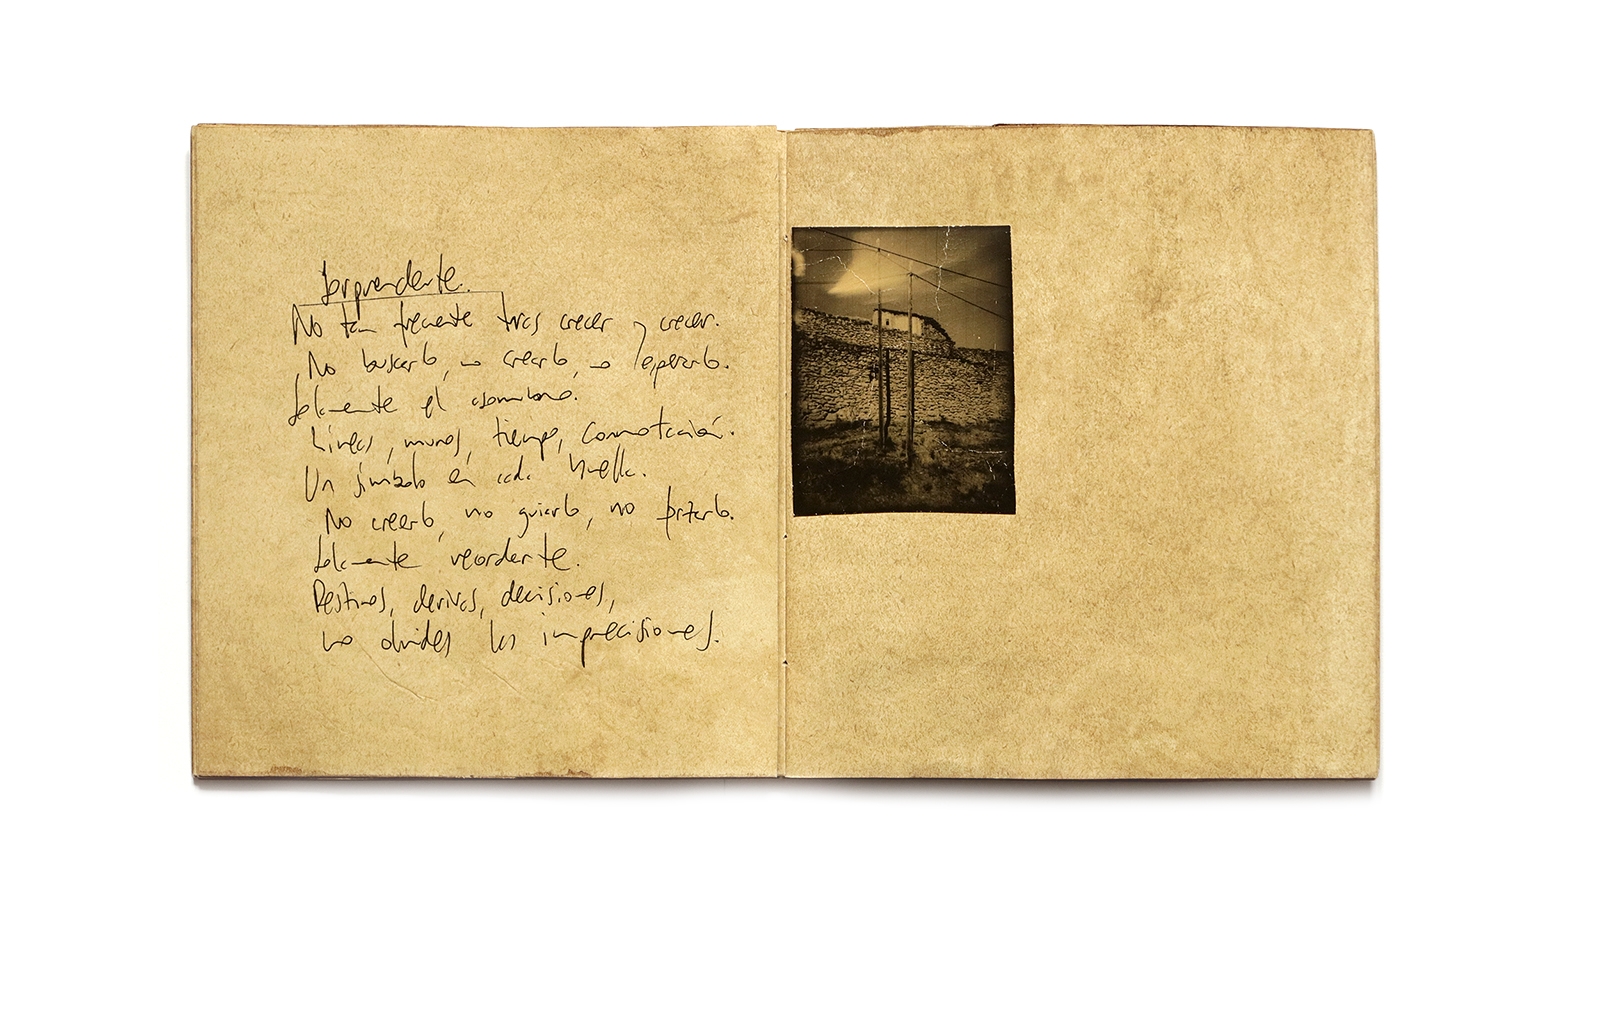 Sorprenderte.
No tan frecuente tras crecer y crecer.
No buscarlo, no crearlo, no esperarlo.
Solamente el asombro.
Líneas, muros, tiempo, connotación.
Un símbolo en cada huella.
No creerlo, no guiarlo, no forzarlo.
Solamente recordarte.
Destinos, derivas, decisiones,
no olvides las imprecisiones.